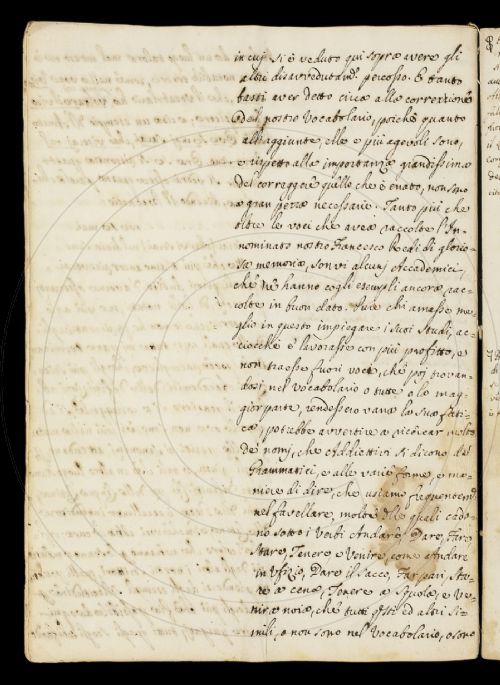 in cuj si è veduto qui sopra avere gli
altri disavvedutam.te percosso. E tanto
basti aver detto circa alla correzione
del nostro Vocabolario, poichè quanto
all'aggiunte, elle e più agevoli sono,
e rispetto alla importanza grandissima
del correggere quello che è errato, non sono
a gran pezza necessarie. Tanto più che
oltre le voci che avea raccolte l'In-
nominato nostro Francesco Redi di glorio-
sa memoria, sonvi alcunj Accademici,
che ne hanno cogli esempli ancora rac-
colte in buon dato. Pure chi amasse me-
glio in questo impiegare i suoi studj, ac-
ciocchè e' lavorasse con più profitto, e
non traesse fuori voci, che poj trovan-
dosi nel Vocabolario o tutte o la mag-
gior parte, rendessero vana la sua fati-
ca, potrebbe avvertire a ricercar molto
de nomj, che Addiettivi si dicono da'
Grammatici, e alle varie forme, e ma-
niere di dire, che usiamo frequentem.te
nel favellare, molte delle quali cado-
no sotto i Verbi Andare, Dare, Fare,
Stare, Tenere, e Venire, come Andare
in Ufizio, Dare il sacco, Far pari, Sta-
re a cena, Tenere a scuola, e Ve-
nire a noia, che tutti questi ed altri si-
mili, o non sono nel Vocabolario, o sono